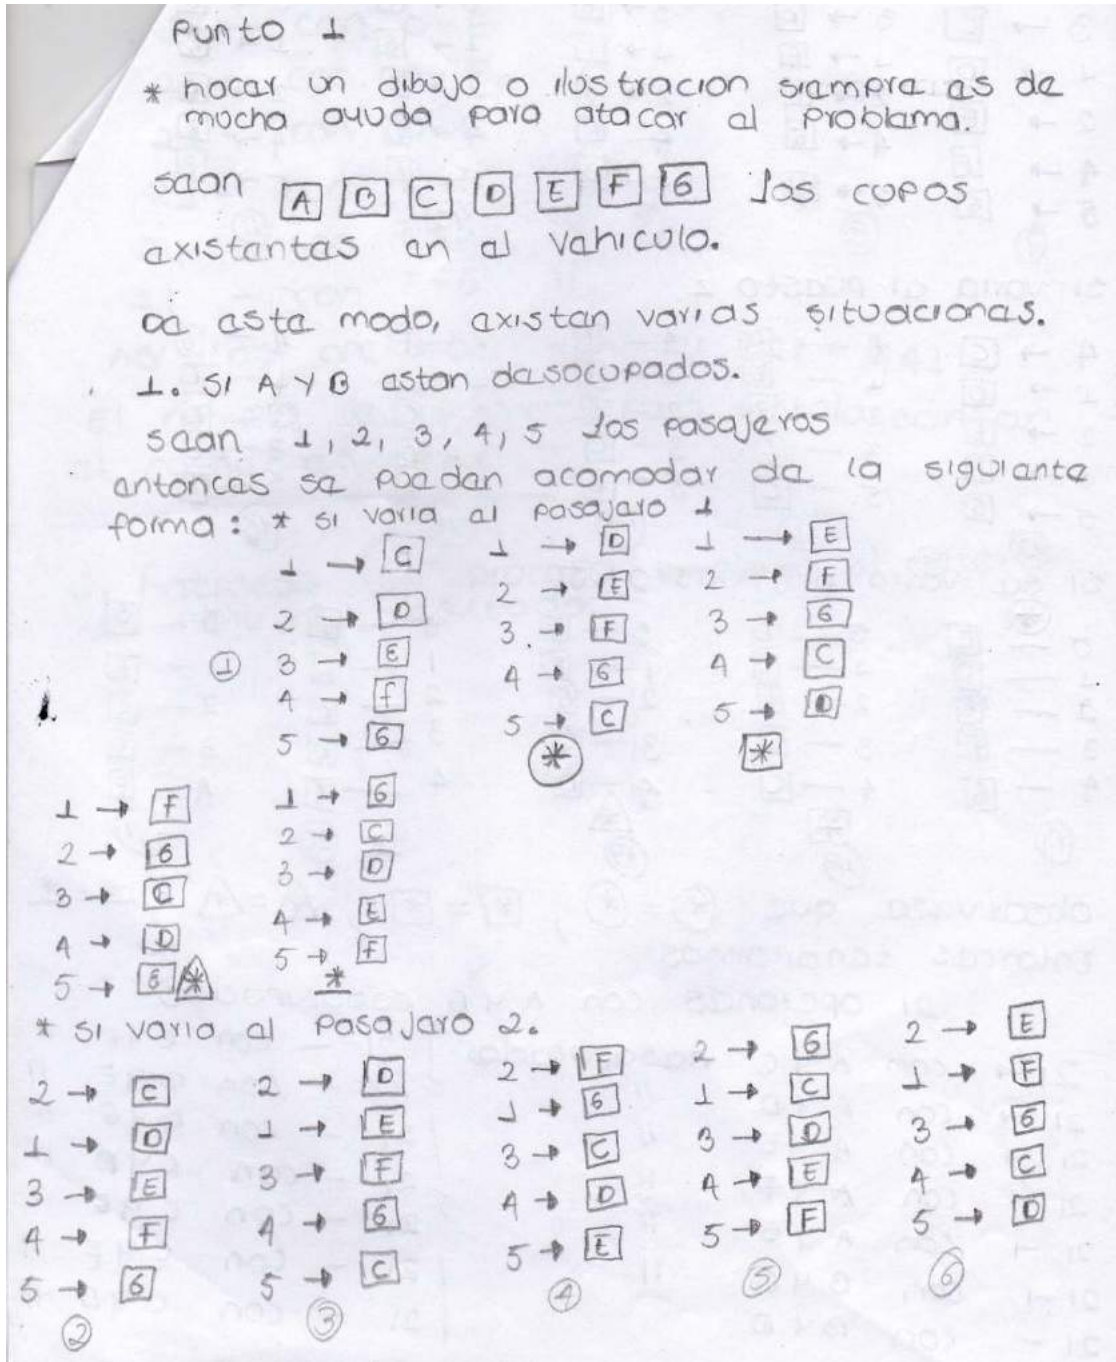 Punto 1
* hacer un dibujo o ilustracion siempre es de
mucha ayuda para atacar el problema.
sean A B C D E F G los cupos
existentes en el vehiculo.
De este modo, existen varias situaciones.
1. Si A y B estan desocupados.
sean 1, 2, 3, 4, 5 los pasajeros
entonces se pueden acomodar de la siguiente
forma: * si varia el pasajero 1
1 → C
2 → D
① 3 → E
4 → F
5 → G
1 → D
2 → E
3 → F
4 → G
5 → C
*
1 → E
2 → F
3 → G
4 → C
5 → D
*
1 → F
2 → G
3 → C
4 → D
5 → E *
1 → G
2 → C
3 → D
4 → E
5 → F
*
* si varia el pasajero 2.
2 → C
1 → D
3 → E
4 → F
5 → G
②
2 → D
1 → E
3 → F
4 → G
5 → C
③
2 → F
1 → G
3 → C
4 → D
5 → E
④
2 → G
1 → C
3 → D
4 → E
5 → F
⑤
2 → E
1 → F
3 → G
4 → C
5 → D
⑥